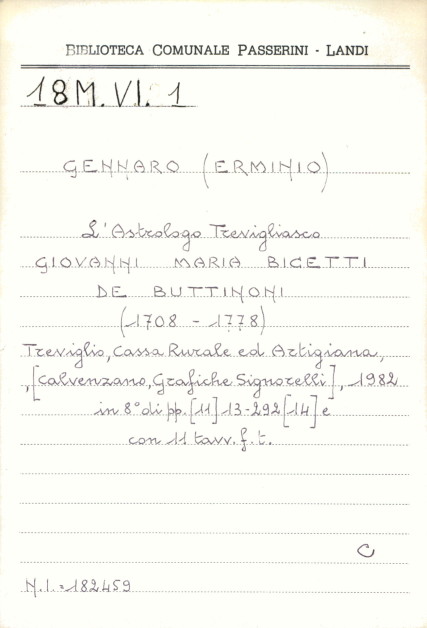 BIBLIOTECA COMUNALE PASSERINI - LANDI
18 M. VI. 1
GENNARO (ERMINIO)
L'Astrologo Trevigliasco
GIOVANNI MARIA BIGETTI
DE BUTTINONI
(1708 - 1778)
Treviglio, Cassa Rurale ed Artigiana,
,[Calvenzano, Grafiche Signorelli], 1982
in 8° di pp. [11] 13-292 [14] e
con 11 tavv. f. t.
C
N.I. = 182459